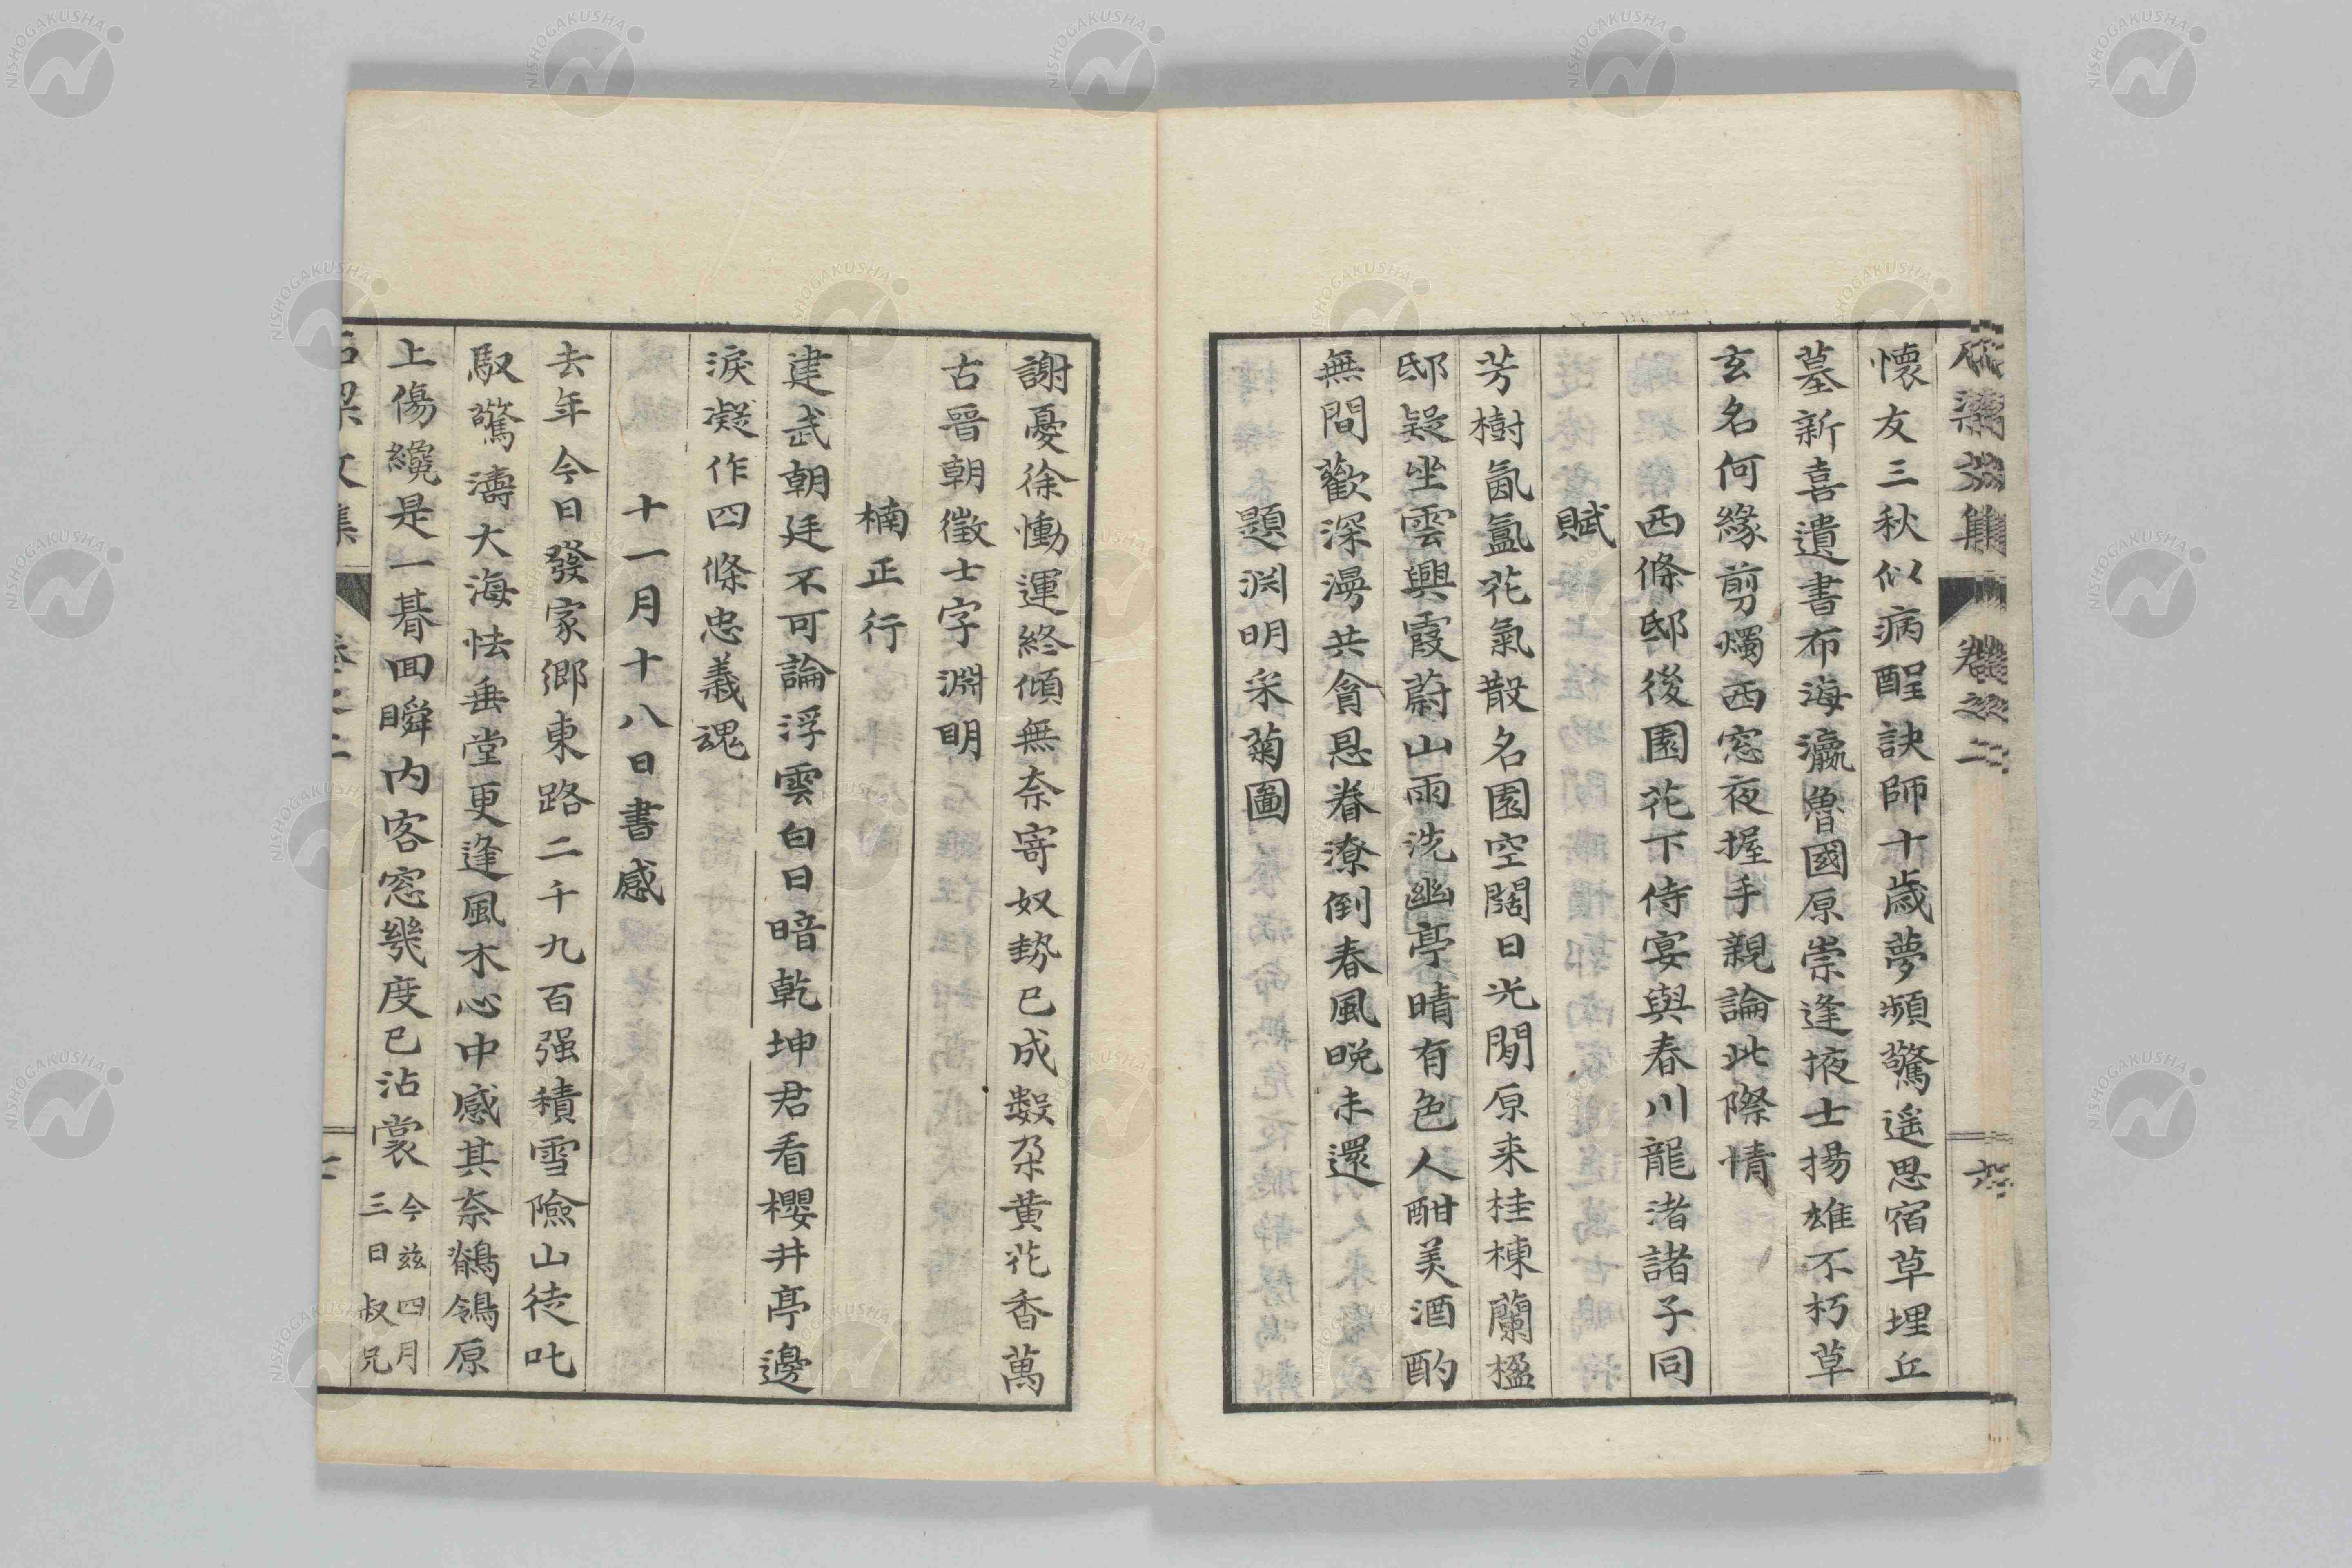 懷友三秋似病酲訣師十歲夢頻驚遥思宿草埋丘
墓新喜遺書布海瀛魯國原崇逢掖士揚雄不朽草
玄名何緣剪燭西窓夜握手親論此際情
西條邸後園花下侍宴與春川龍渚諸子同
賦
芳樹氤氳花氣散名園空闊日光閒原来桂棟蘭楹
邸疑坐雲興霞蔚山雨洗幽亭晴有色人酣美酒酌
無間歡深漫共貪恩眷潦倒春風晩未還
題淵明采菊圖
謝憂徐慟運終傾無奈寄奴勢已成數朶黄花香萬
古晋朝徵士字淵明
楠正行
建武朝廷不可論浮雲白日暗乾坤君看櫻井亭邊
淚凝作四條忠義魂
十一月十八日書感
去年今日發家鄉東路二千九百强積雪險山徒叱
馭驚濤大海怯垂堂更逢風木心中感其奈鶺鴒原
上傷纔是一朞回瞬内客窓幾度已沾裳今兹四月
三日叔兄
文集
卷之二
卷之二
六
NISHOGAKUSHA